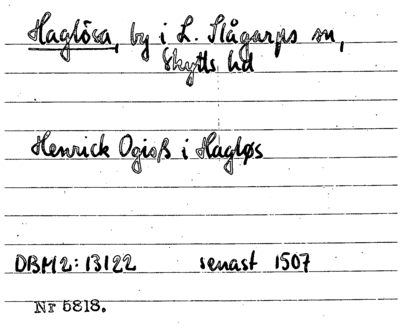 Haglösa, by i L. Slågarps sn,
Skytts hd
Henrick Ogisß i Hagløs
DBM2: 13122 senast 1507
Nr 5818.